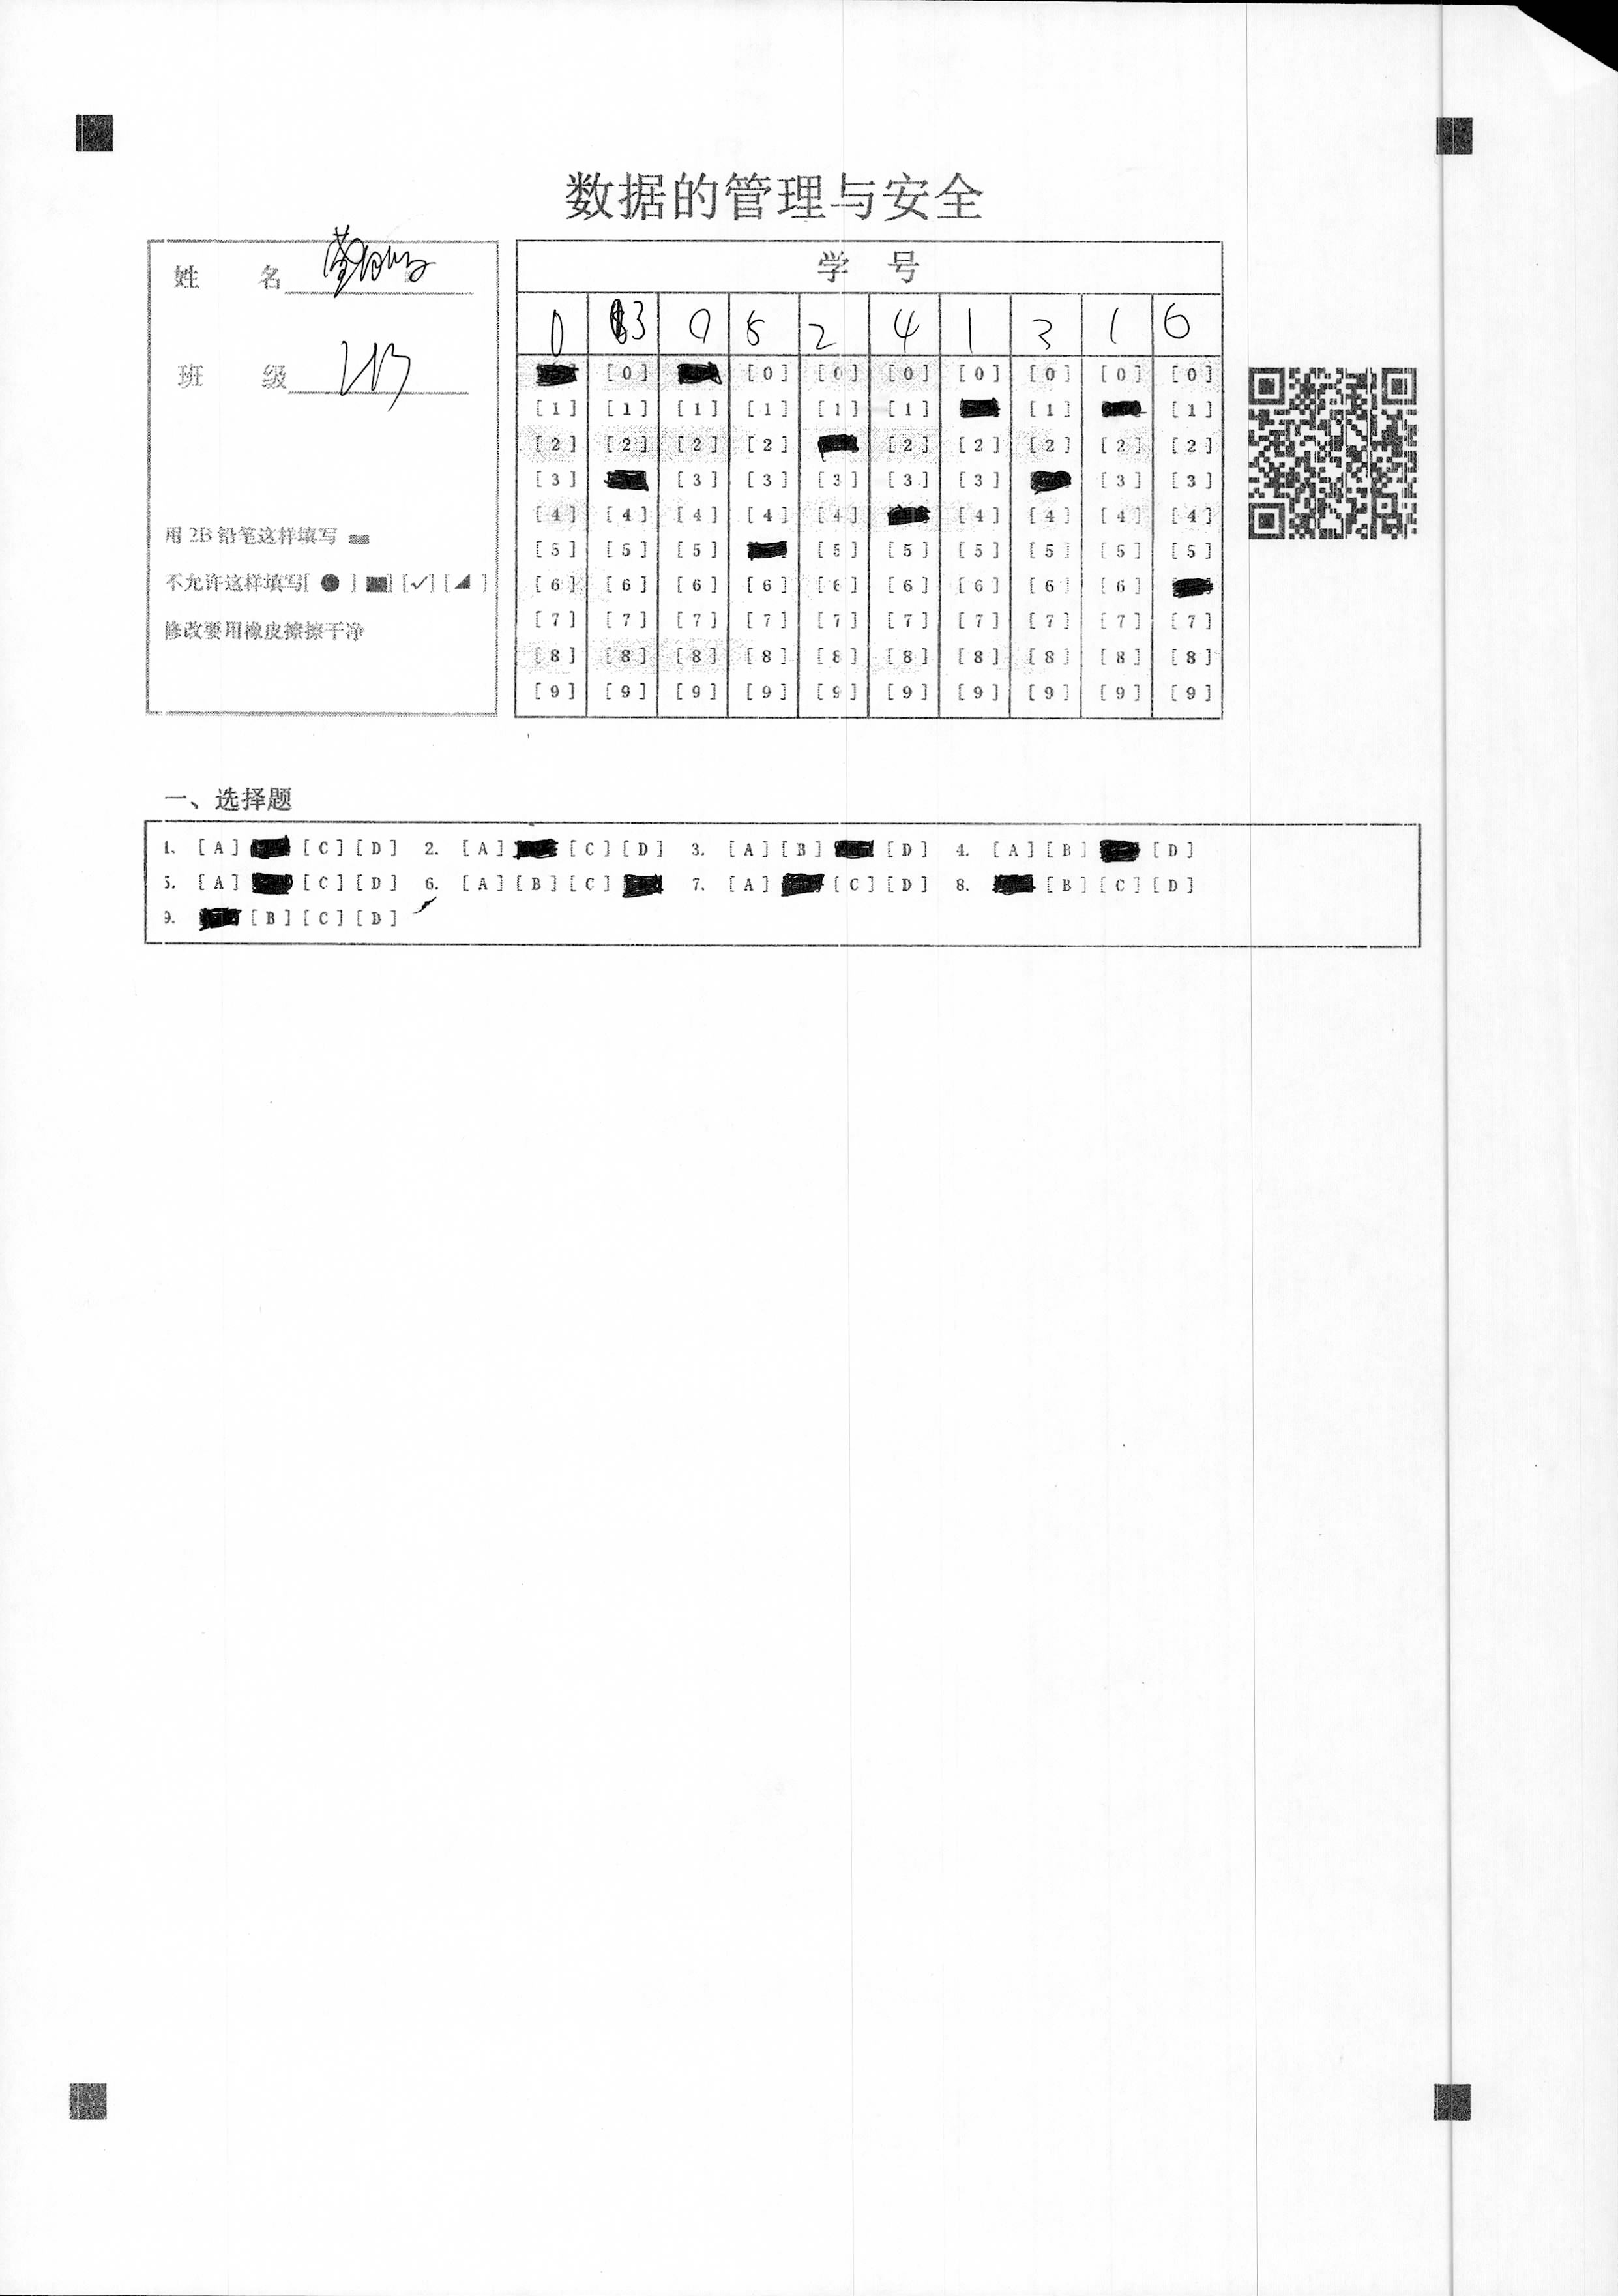 数据的管理与安全
姓 名
班 级 213
用 2B 铅笔这样填写
不允许这样填写[ ● ] [■] [✓] [◢ ]
修改要用橡皮擦擦干净
学 号
0 3 0 5 2 4 1 3 1 6
[0] [0] [0] [0] [0] [0] [0] [0]
[1] [1] [1] [1] [1] [1] [1] [1]
[2] [2] [2] [2] [2] [2] [2] [2] [2]
[3] [3] [3] [3] [3] [3] [3] [3]
[4] [4] [4] [4] [4] [4] [4] [4] [4]
[5] [5] [5] [5] [5] [5] [5] [5] [5]
[6] [6] [6] [6] [6] [6] [6] [6] [6]
[7] [7] [7] [7] [7] [7] [7] [7] [7] [7]
[8] [8] [8] [8] [8] [8] [8] [8] [8] [8]
[9] [9] [9] [9] [9] [9] [9] [9] [9] [9]
一、选择题
1. [A] [C] [D] 2. [A] [C] [D] 3. [A] [B] [D] 4. [A] [B] [D]
5. [A] [C] [D] 6. [A] [B] [C] 7. [A] [C] [D] 8. [B] [C] [D]
9. [B] [C] [D]